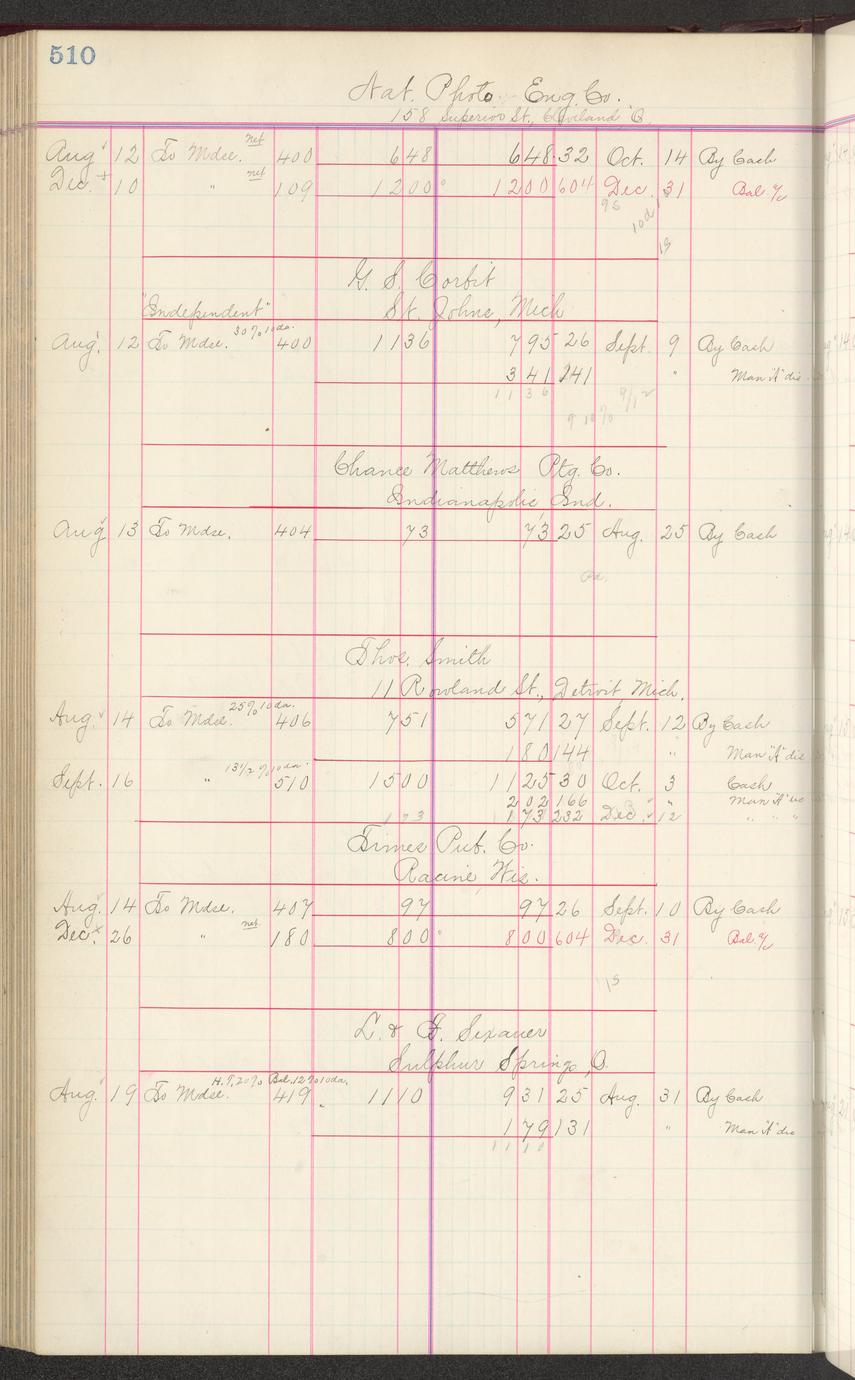 510
Nat. Photo Eng. Co.
158 Superior St., Cleveland, O.
Aug 12 To Mdse. net 400 648 648 32 Oct. 14 By Cash
Dec. 10 " net 109 1200 1200 604 Dec. 31 Bal. a/c
9s
10d
1s
G. S. Corbit
"Independent" St. Johns, Mich
Aug. 12 To Mdse. 30% 10 da. 400 1136 795 26 Sept. 9 By Cash
341 141 " Man "A" dis
1136 9/12
9 10%
Chance Matthews Ptg. Co.
Indianapolis, Ind.
Aug 13 To Mdse. 404 73 73 25 Aug. 25 By Cash
Pd.
Thos. Smith
11 Rowland St., Detroit Mich.
Aug. 14 To Mdse. 25% 10 da. 406 751 571 27 Sept. 12 By Cash
180 144 " Man "A" dis
Sept. 16 " 13 1/2 % 10 da. 510 1500 1125 30 Oct. 3 Cash
202 166 " " Man "A" dis
173 173 232 Dec. 12 " " "
Times Pub. Co.
Racine, Wis.
Aug. 14 To Mdse. 407 97 97 26 Sept. 10 By Cash
Dec. 26 " net 180 800 800 604 Dec. 31 Bal. a/c
1s
L. & F. Sexauer
Sulphur Springs, O.
Aug 19 To Mdse. H.T. 20% Bal. 12% 10 da. 419 1110 931 25 Aug. 31 By Cash
179 131 " Man "A" dis
1110